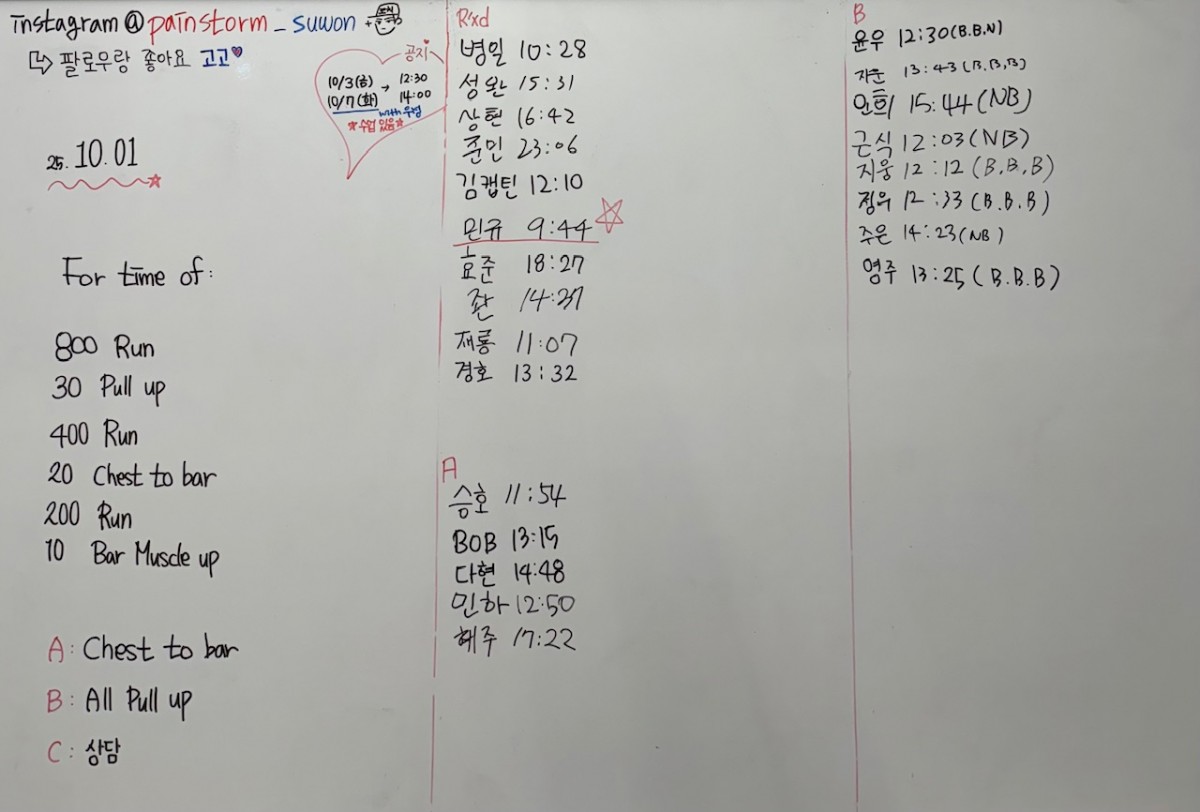 instagram @ painstorm_suwon +
↳ 팔로우랑 좋아요 고고♥
공지
10/3(금) → 12:30
10/7(화) 14:00
with 우섭
☆수업 있음☆
25. 10.01
For time of:
800 Run
30 Pull up
400 Run
20 Chest to bar
200 Run
10 Bar Muscle up
A: Chest to bar
B: All Pull up
C: 상담
Rxd
병일 10:28
성완 15:31
상현 16:42
준민 23:06
김캡틴 12:10
민규 9:44 ☆
효준 18:27
좐 14:37
재룡 11:07
경호 13:32
A
승호 11:54
BOB 13:15
다현 14:48
민하 12:50
혜주 17:22
B
윤우 12:30(B.B.N)
지운 13:43(B.B.B)
은희 15:44(NB)
근식 12:03(NB)
지웅 12:12(B.B.B)
정우 12:33(B.B.B)
주은 14:23(NB)
영주 13:25(B.B.B)